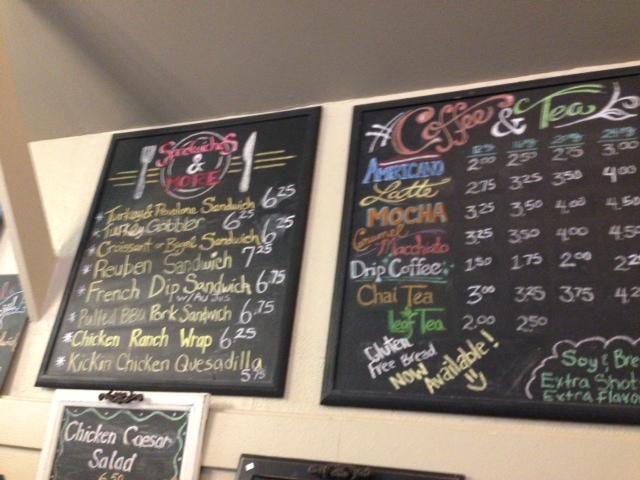 Sandwiches
&
MORE
* Turkey & Provolone Sandwich 6.25
Turkey Gobbler 6.25
* Croissant or Bagel Sandwich 6.25
* Reuben Sandwich 7.25
* French Dip Sandwich 6.75
w/ Au Jus
* Pulled BBQ Pork Sandwich 6.75
* Chicken Ranch Wrap 6.25
* Kickin Chicken Quesadilla
5.75
Chicken Caesar
Salad
6.50
Coffee & Tea
AMERICANO 2.00 2.50 2.75 3.00
Latte 2.75 3.25 3.50 4.00
MOCHA 3.25 3.50 4.00 4.50
Caramel Macchiato 3.25 3.50 4.00 4.50
Drip Coffee 1.50 1.75 2.00 2.2
Chai Tea 3.00 3.25 3.75 4.2
leaf Tea 2.00 2.50
Gluten
Free Bread
NOW Available!
Soy & Bre
Extra Shot
Extra Flavo